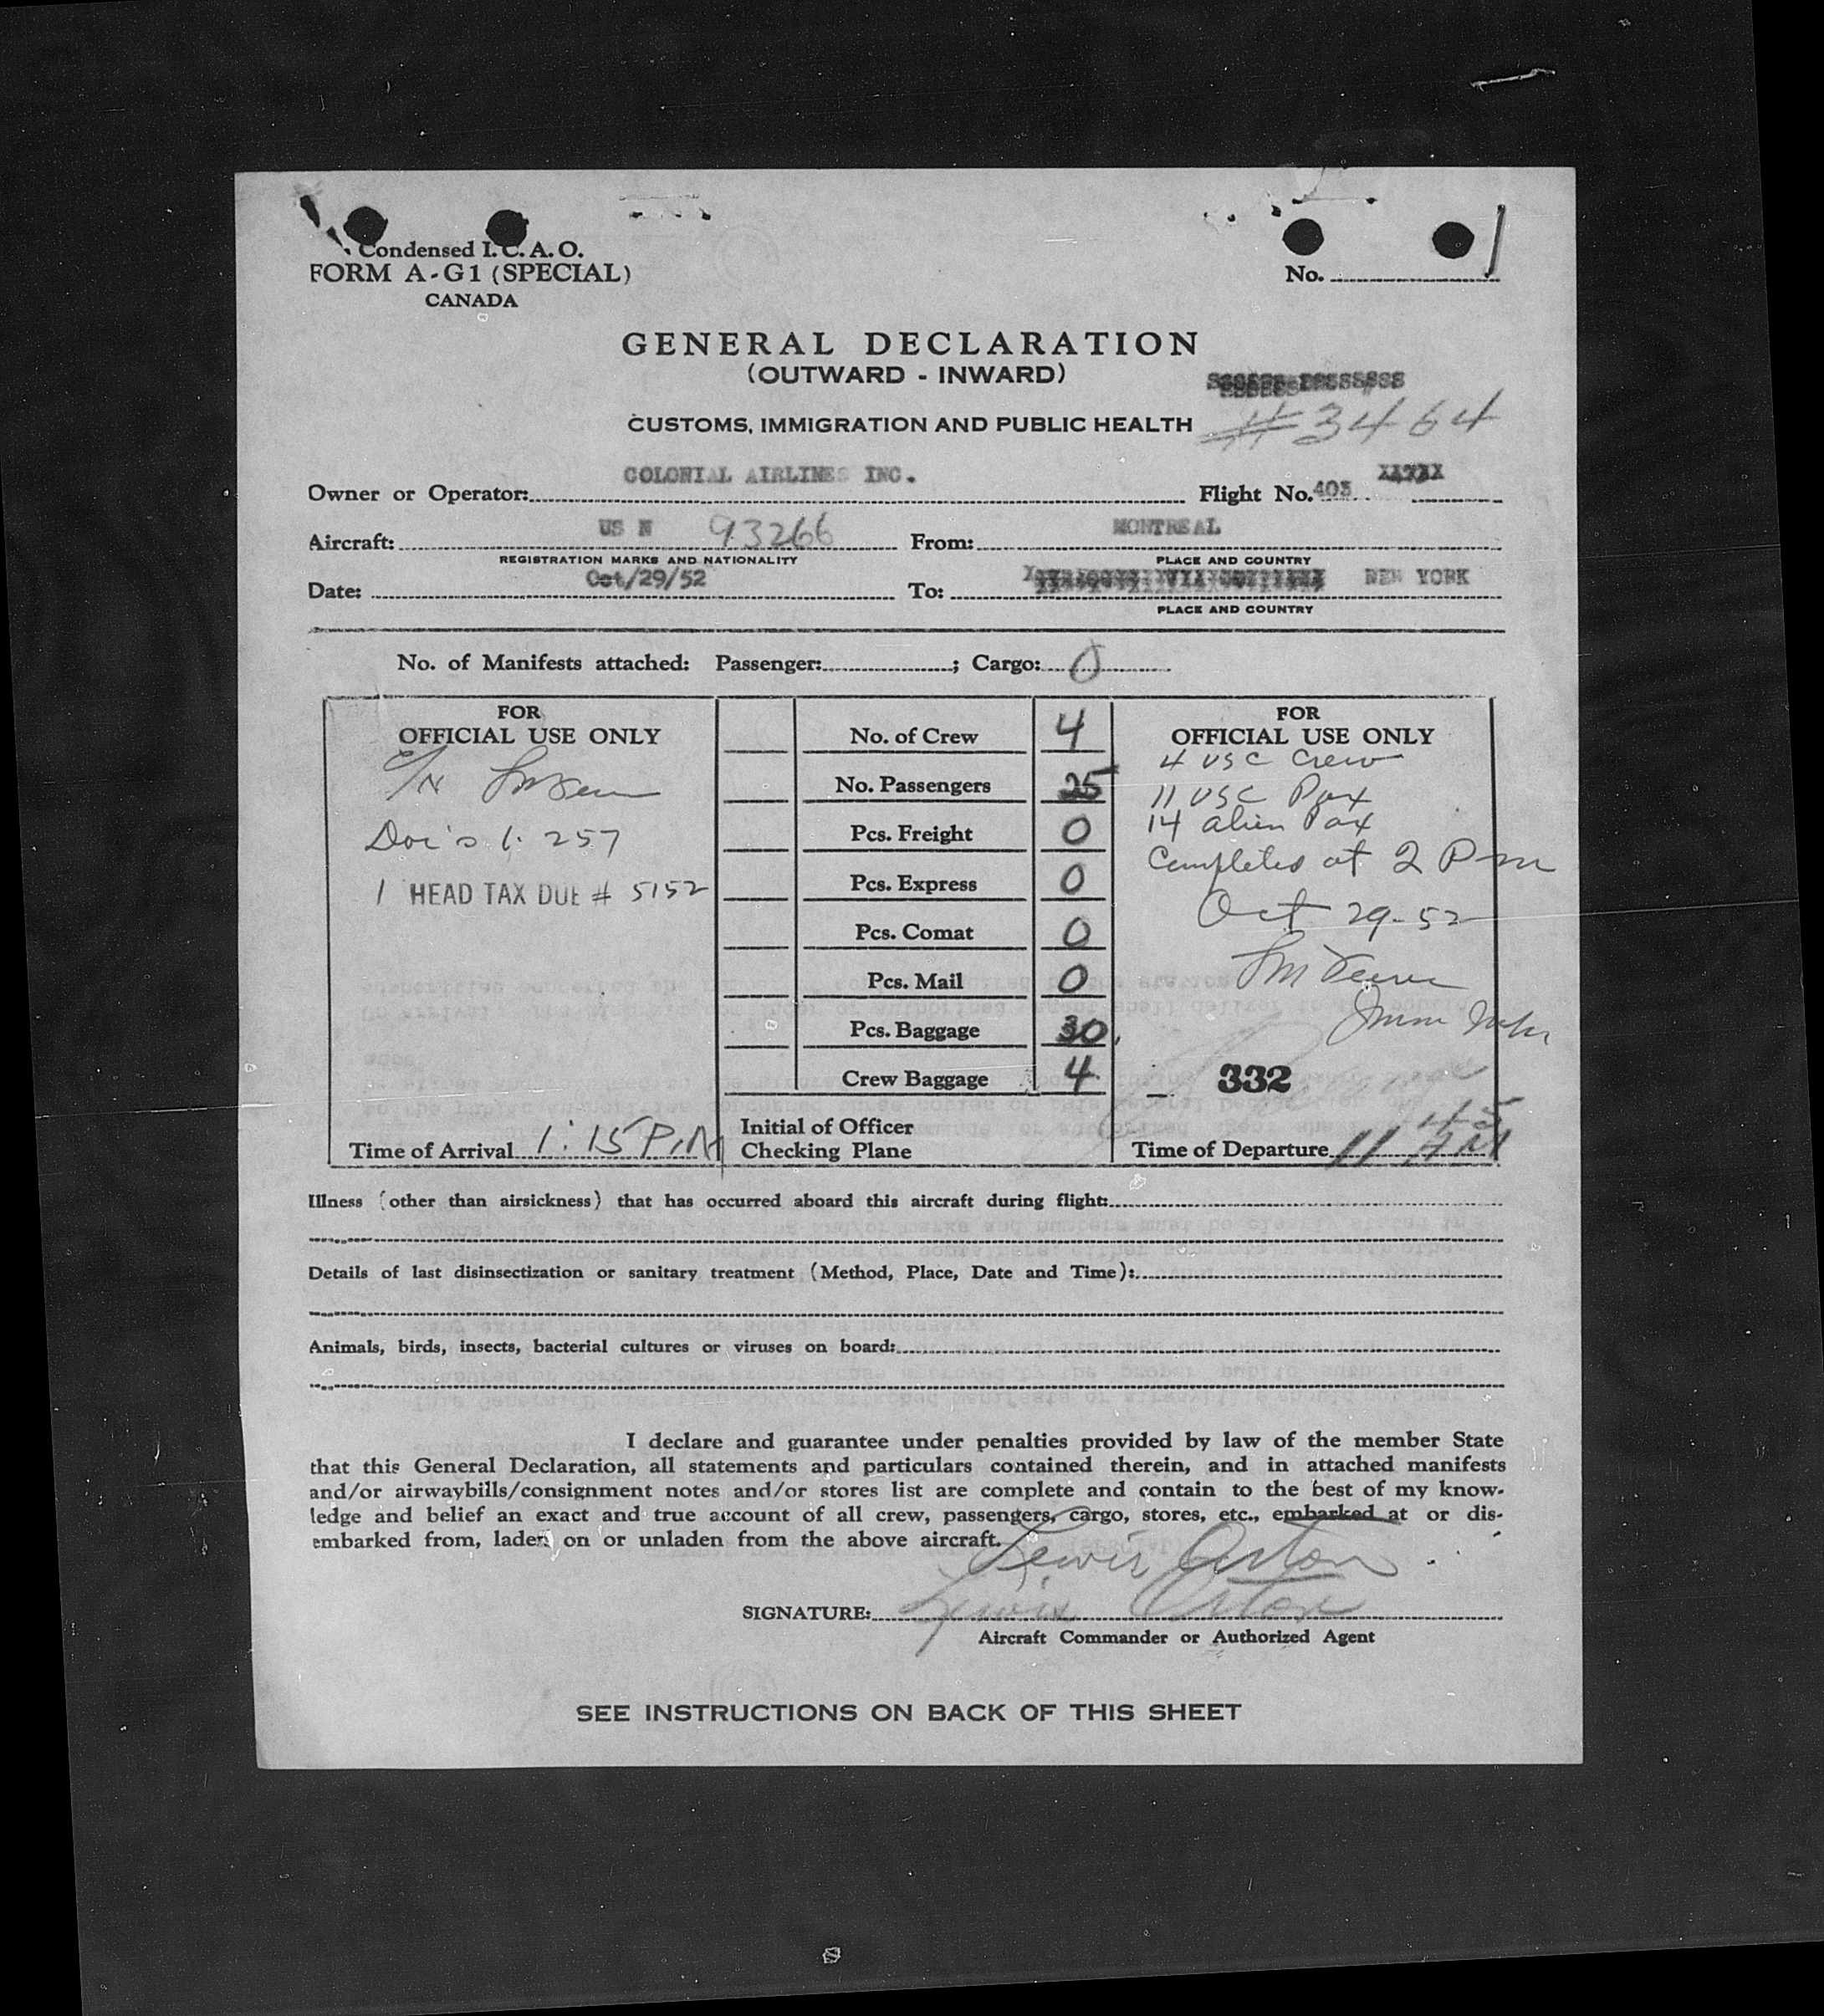 Condensed I.C.A.O.
FORM A-G1 (SPECIAL)
CANADA
No.
GENERAL DECLARATION
(OUTWARD - INWARD)
CUSTOMS, IMMIGRATION AND PUBLIC HEALTH
#3464
Owner or Operator: COLONIAL AIRLINES INC. Flight No. 403
Aircraft: US N 93266 From: MONTREAL
REGISTRATION MARKS AND NATIONALITY PLACE AND COUNTRY
Date: Oct/29/52 To: NEW YORK
PLACE AND COUNTRY
No. of Manifests attached: Passenger: ; Cargo: 0
FOR
OFFICIAL USE ONLY
Doc's 1. 257
1 HEAD TAX DUE # 5152
Time of Arrival 1:15 P.M
No. of Crew 4
No. Passengers 25
Pcs. Freight 0
Pcs. Express 0
Pcs. Comat 0
Pcs. Mail 0
Pcs. Baggage 30
Crew Baggage 4
Initial of Officer
Checking Plane
FOR
OFFICIAL USE ONLY
4 USC Crew
11 USC Pax
14 alien Pax
Completed at 2 Pm
Oct 29-52
332
Time of Departure 11 45 AM
Illness (other than airsickness) that has occurred aboard this aircraft during flight:
Details of last disinsectization or sanitary treatment (Method, Place, Date and Time):
Animals, birds, insects, bacterial cultures or viruses on board:
I declare and guarantee under penalties provided by law of the member State
that this General Declaration, all statements and particulars contained therein, and in attached manifests
and/or airwaybills/consignment notes and/or stores list are complete and contain to the best of my know-
ledge and belief an exact and true account of all crew, passengers, cargo, stores, etc., embarked at or dis-
embarked from, laden on or unladen from the above aircraft.
SIGNATURE: Lewis
Aircraft Commander or Authorized Agent
SEE INSTRUCTIONS ON BACK OF THIS SHEET